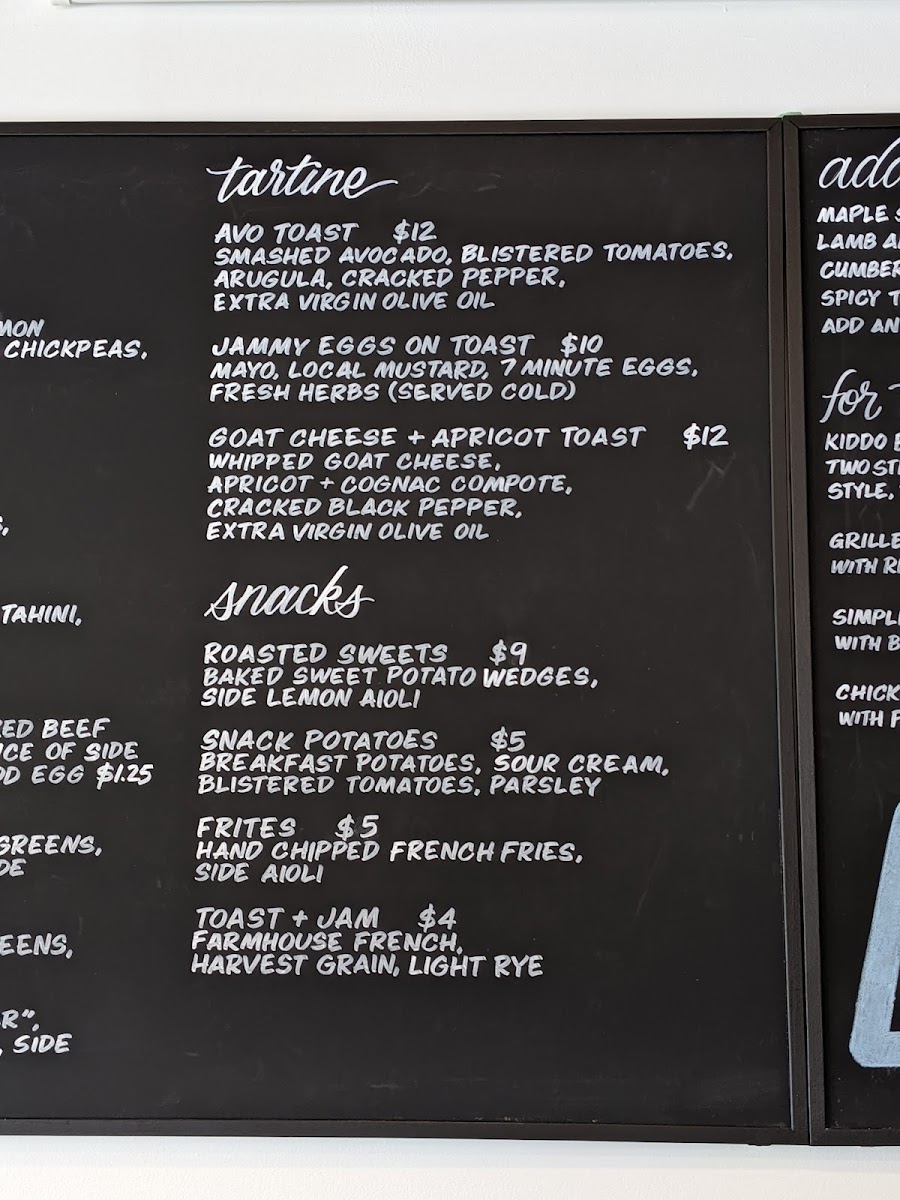 MON
CHICKPEAS,
TAHINI,
BEEF
OF SIDE
EGG $1.25
GREENS,
SIDE
tartine
AVO TOAST $12
SMASHED AVOCADO, BLISTERED TOMATOES,
ARUGULA, CRACKED PEPPER,
EXTRA VIRGIN OLIVE OIL
JAMMY EGGS ON TOAST $10
MAYO, LOCAL MUSTARD, 7 MINUTE EGGS,
FRESH HERBS (SERVED COLD)
GOAT CHEESE + APRICOT TOAST $12
WHIPPED GOAT CHEESE,
APRICOT + COGNAC COMPOTE,
CRACKED BLACK PEPPER,
EXTRA VIRGIN OLIVE OIL
snacks
ROASTED SWEETS $9
BAKED SWEET POTATO WEDGES,
SIDE LEMON AIOLI
SNACK POTATOES $5
BREAKFAST POTATOES, SOUR CREAM,
BLISTERED TOMATOES, PARSLEY
FRITES $5
HAND CHIPPED FRENCH FRIES,
SIDE AIOLI
TOAST + JAM $4
FARMHOUSE FRENCH,
HARVEST GRAIN, LIGHT RYE
add
MAPLE
LAMB
CUMBER
SPICY
ADD AN
for
KIDDO
TWO
STYLE,
GRILLE
WITH
SIMPL
WITH
CHICK
WITH